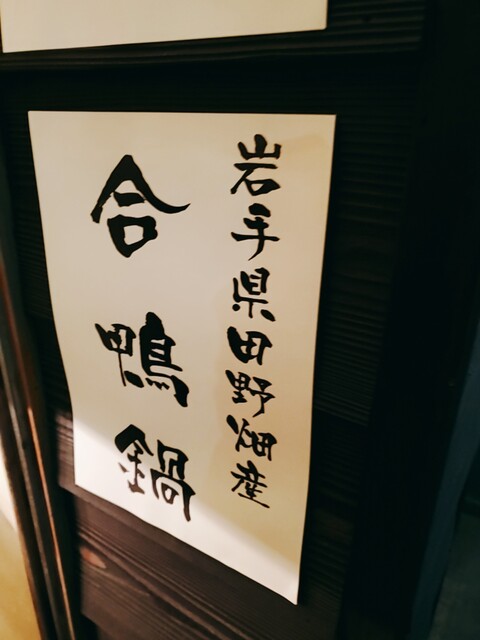 岩手県田野畑産
合鴨鍋